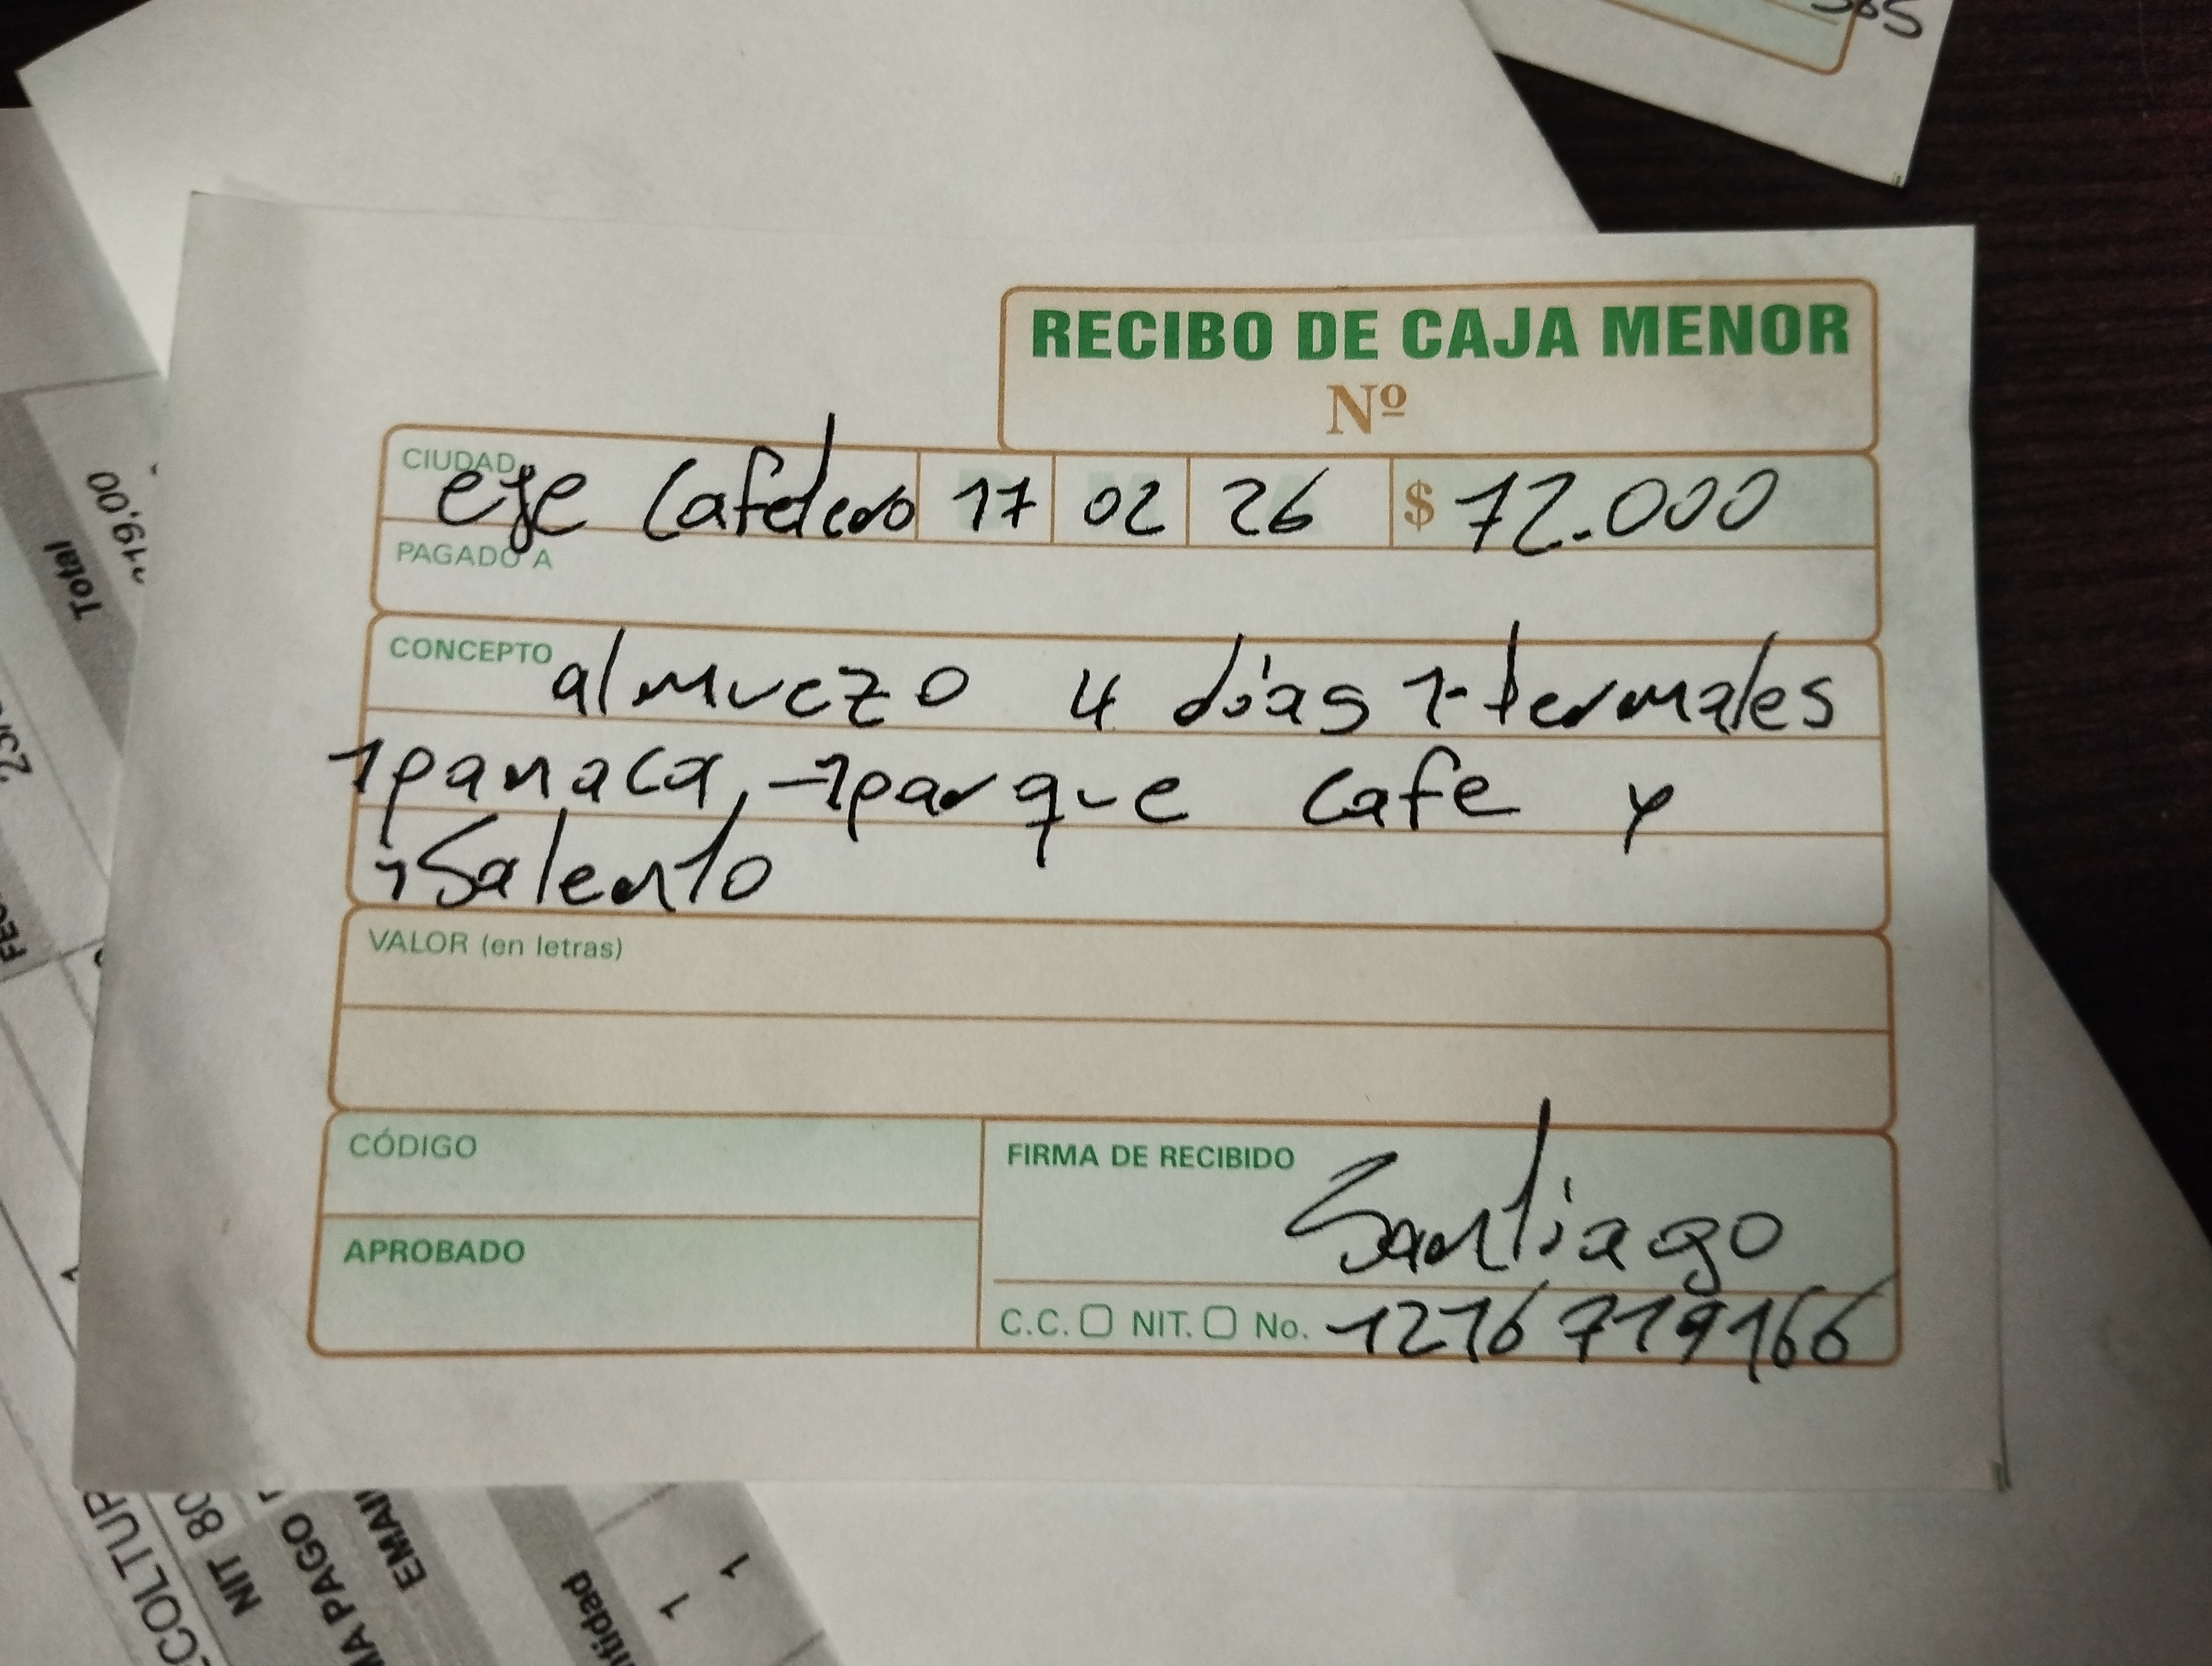 RECIBO DE CAJA MENOR
Nº
CIUDAD eje Cafetero 17 02 26 $ 72.000
PAGADO A
CONCEPTO almuezo 4 días 1-termales
1panaca, -1parque cafe y
1Salento
VALOR (en letras)
CÓDIGO
FIRMA DE RECIBIDO Santiago
APROBADO
C.C. NIT. No. 1216719166
Total
119,00
NIT 80
MA PAGO
EMAIL
ntidad
1
1